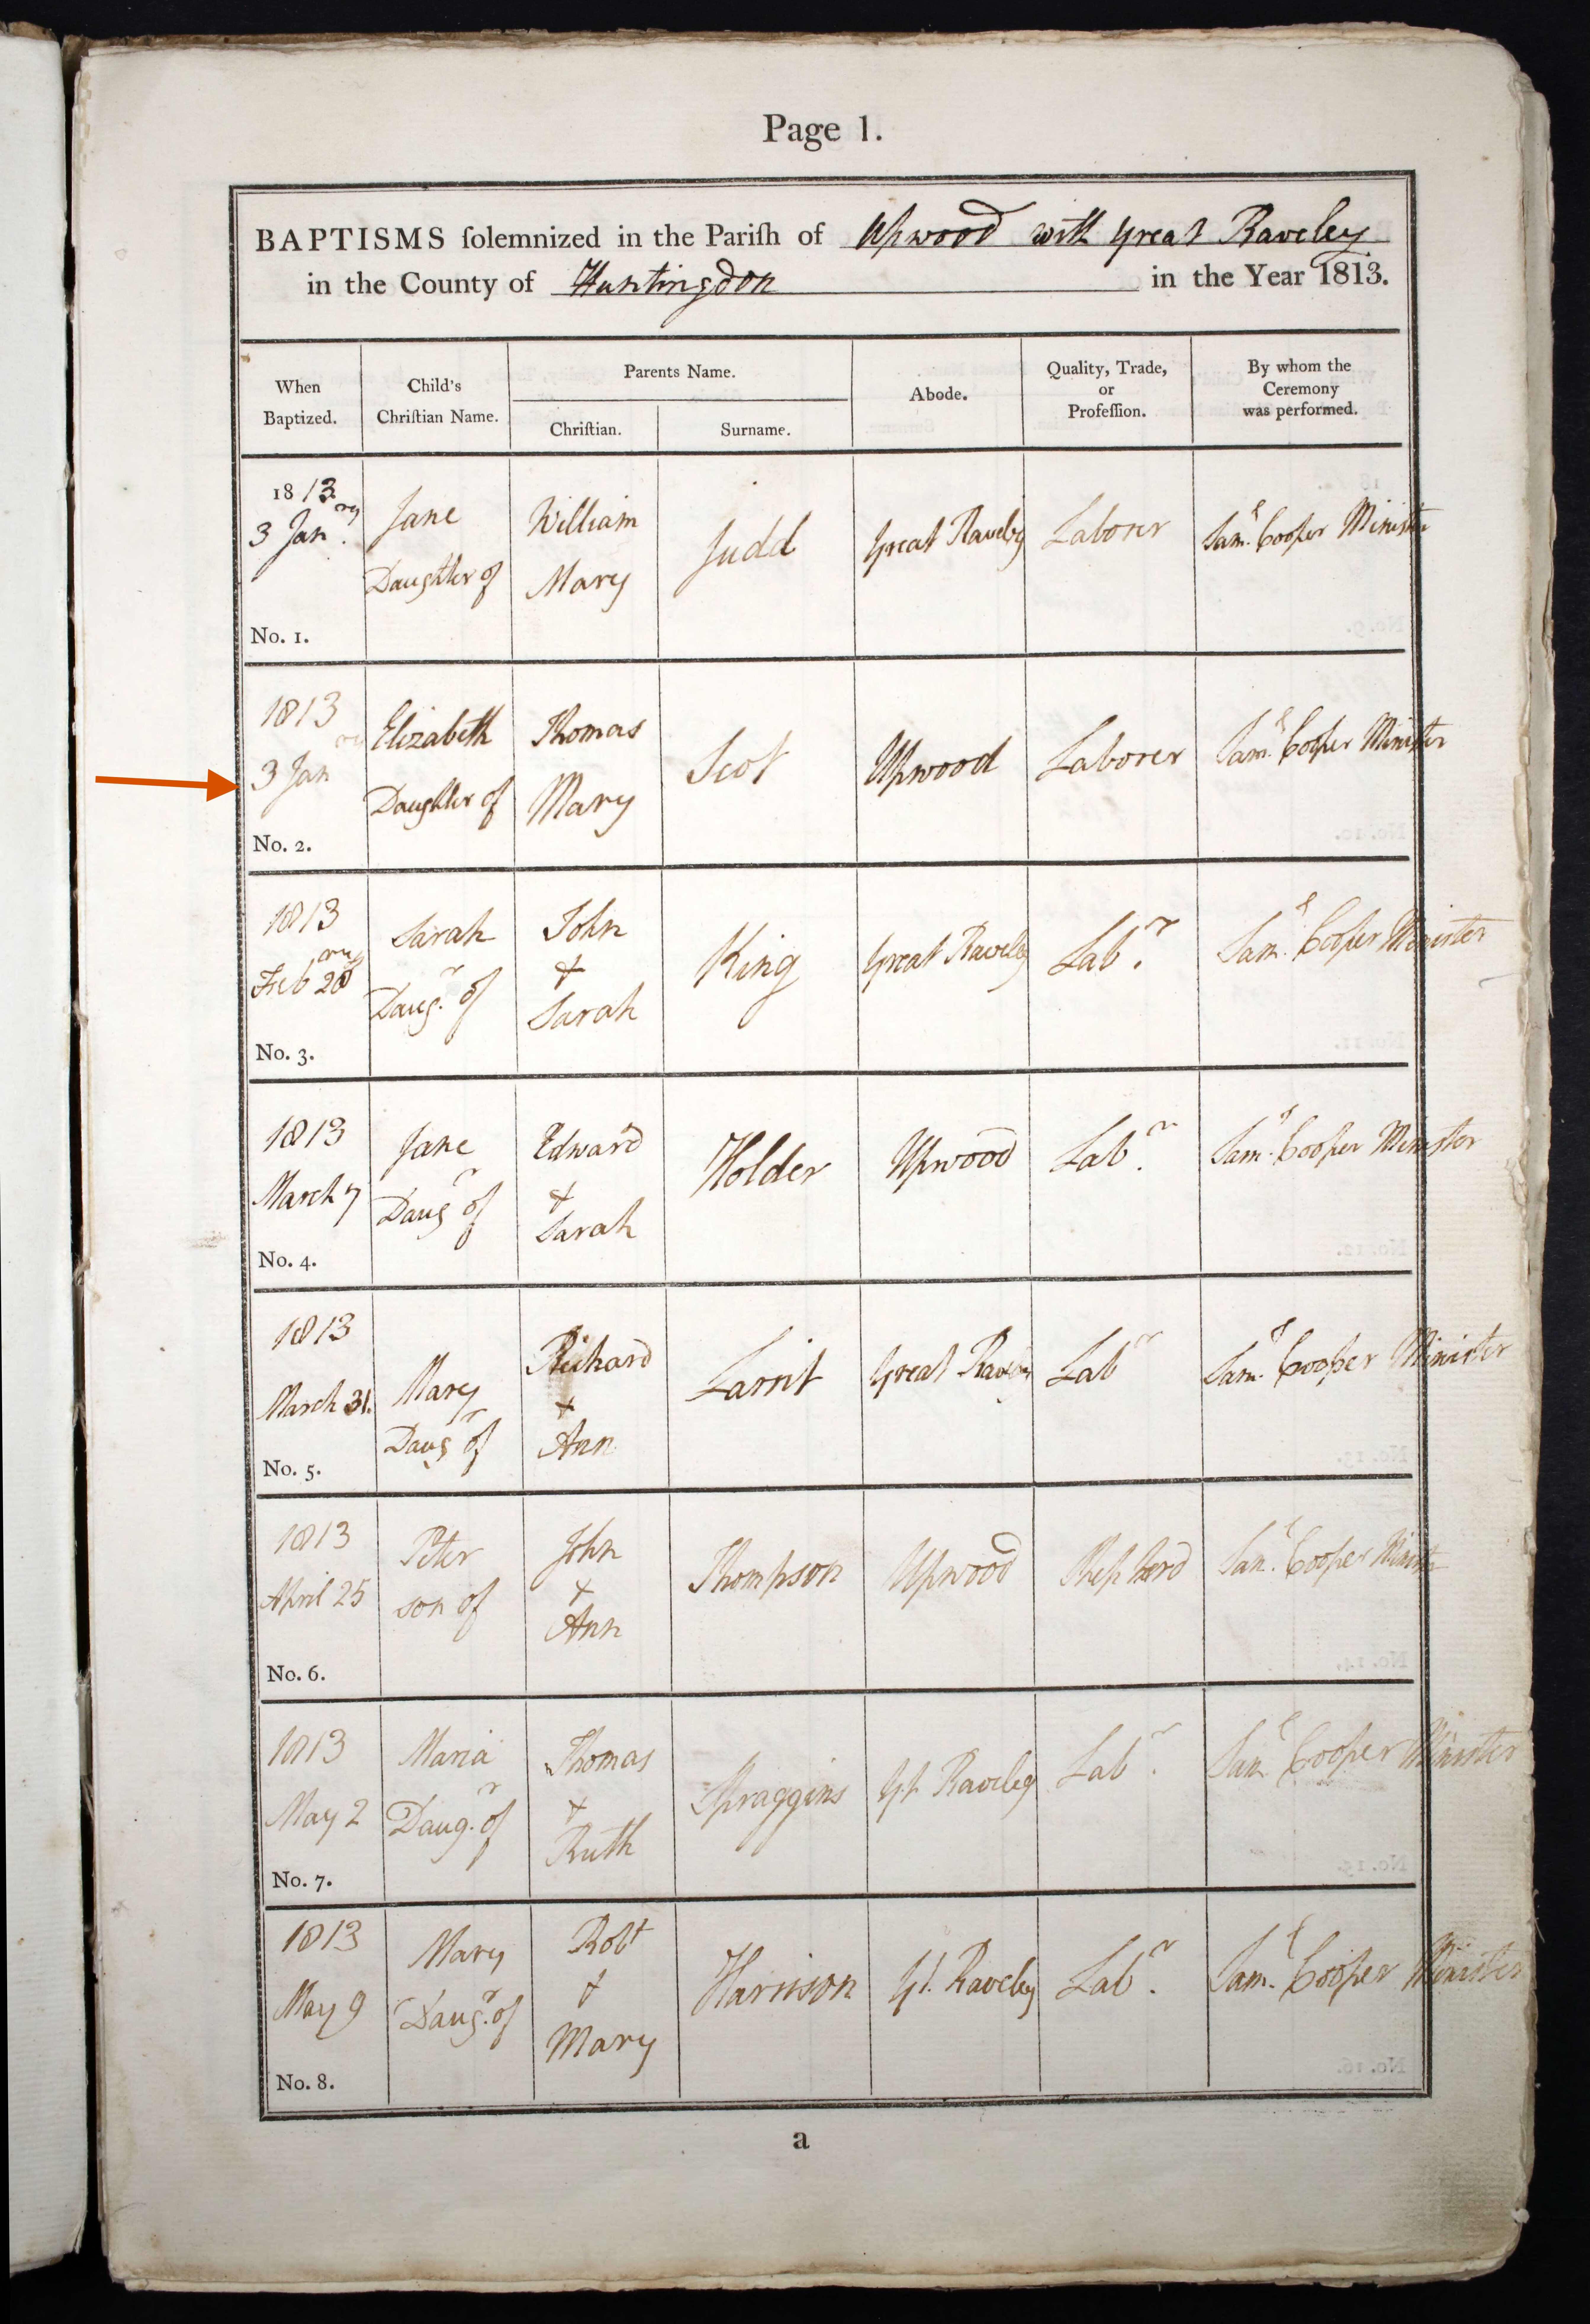 Page 1.
BAPTISMS ſolemnized in the Pariſh of Upwood with Great Raveley
in the County of Huntingdon in the Year 1813.
When Baptized.
Child's Chriſtian Name.
Parents Name.
Chriſtian.
Surname.
Abode.
Quality, Trade, or Profeſſion.
By whom the Ceremony was performed.
1813.
3 Janry.
No. 1.
Jane
Daughter of
William
Mary
Judd
Great Raveley
Laborer
Saml. Cooper Minister
1813
3 Janry
No. 2.
Elizabeth
Daughter of
Thomas
Mary
Scot
Upwood
Laborer
Saml. Cooper Minister
1813
Febry 28
No. 3.
Sarah
Daugr. of
John
&
Sarah
King
Great Raveley
Labr.
Saml. Cooper Minister
1813
March 7
No. 4.
Jane
Daugr of
Edward
&
Sarah
Holder
Upwood
Labr.
Saml. Cooper Minister
1813
March 31.
No. 5.
Mary
Daugr of
Richard
&
Ann
Great Raveley
Labr
Saml. Cooper Minister
1813
April 25
No. 6.
Peter
son of
John
&
Ann
Thompson
Upwood
Shepherd
Saml. Cooper Minister
1813
May 2
No. 7.
Maria
Daugr. of
Thomas
&
Ruth
Spraggins
Gt Raveley
Labr.
Saml Cooper Minister
1813
May 9
No. 8.
Mary
Daugr. of
Robt
&
Mary
Harrison
Gt. Raveley
Labr.
Saml. Cooper Minister
a